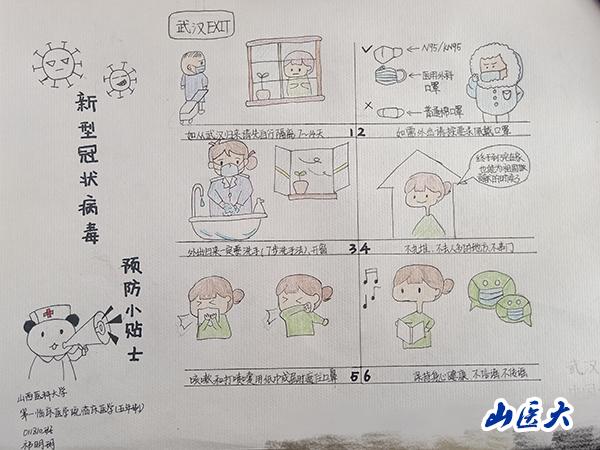 武汉EXIT
新型冠状病毒
预防小贴士
N95/KN95
医用外科
口罩
普通棉口罩
如从武汉归来请先自行隔离7~14天
1
2
如需外出请按要求佩戴口罩
终于到宅在家
也能为祖国做
贡献的时候了
外出归来一定要洗手(7步洗手法),开窗
3
4
不扎堆、不去人多的地方,不串门
咳嗽和打喷嚏用纸巾或屈肘遮住口鼻
5
6
保持身心健康,不信谣,不传谣
山西医科大学
第一临床医学院,临床医学(五年制)
山医大